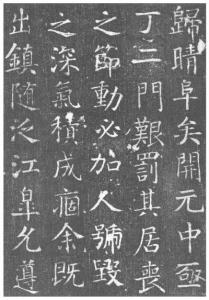 歸晴阜矣開元中亟
丁二門艱罰其居喪
之節動必加人號毀
之深氣積成痼余既
出鎮隨泛江皐允遵